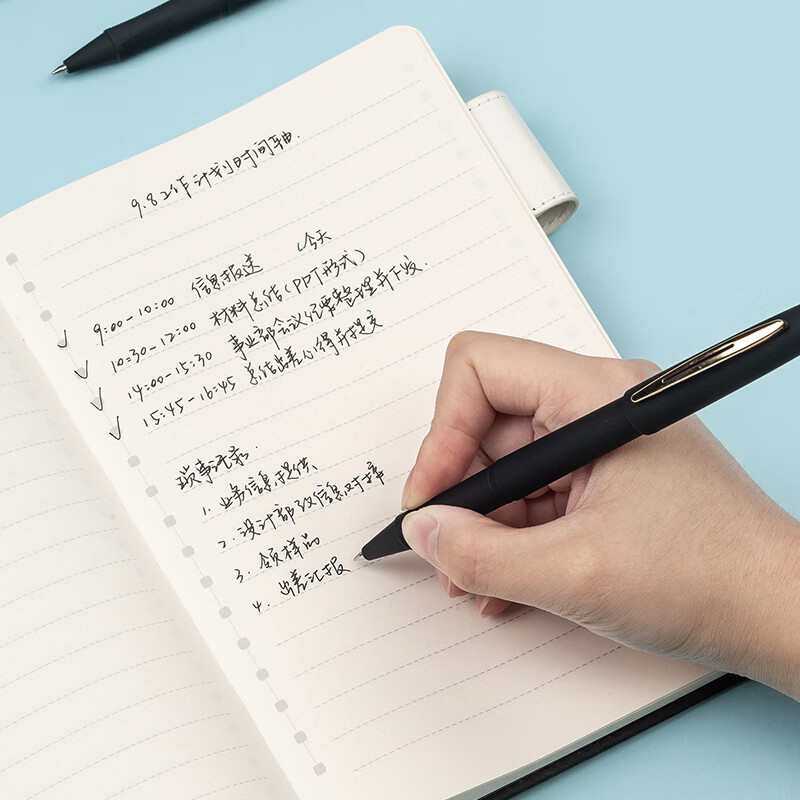 9.8工作计划时间轴.
9:00-10:00 信息报送 (今天
10:30-12:00 材料总结(PPT形式)
14:00-15:30 事业部会议纪要整理并下发.
15:45-16:45 总结出差心得并提交
琐事记录.
1. 业务信息提供
2. 设计部 信息对接
3. 领样品
4. 出差汇报